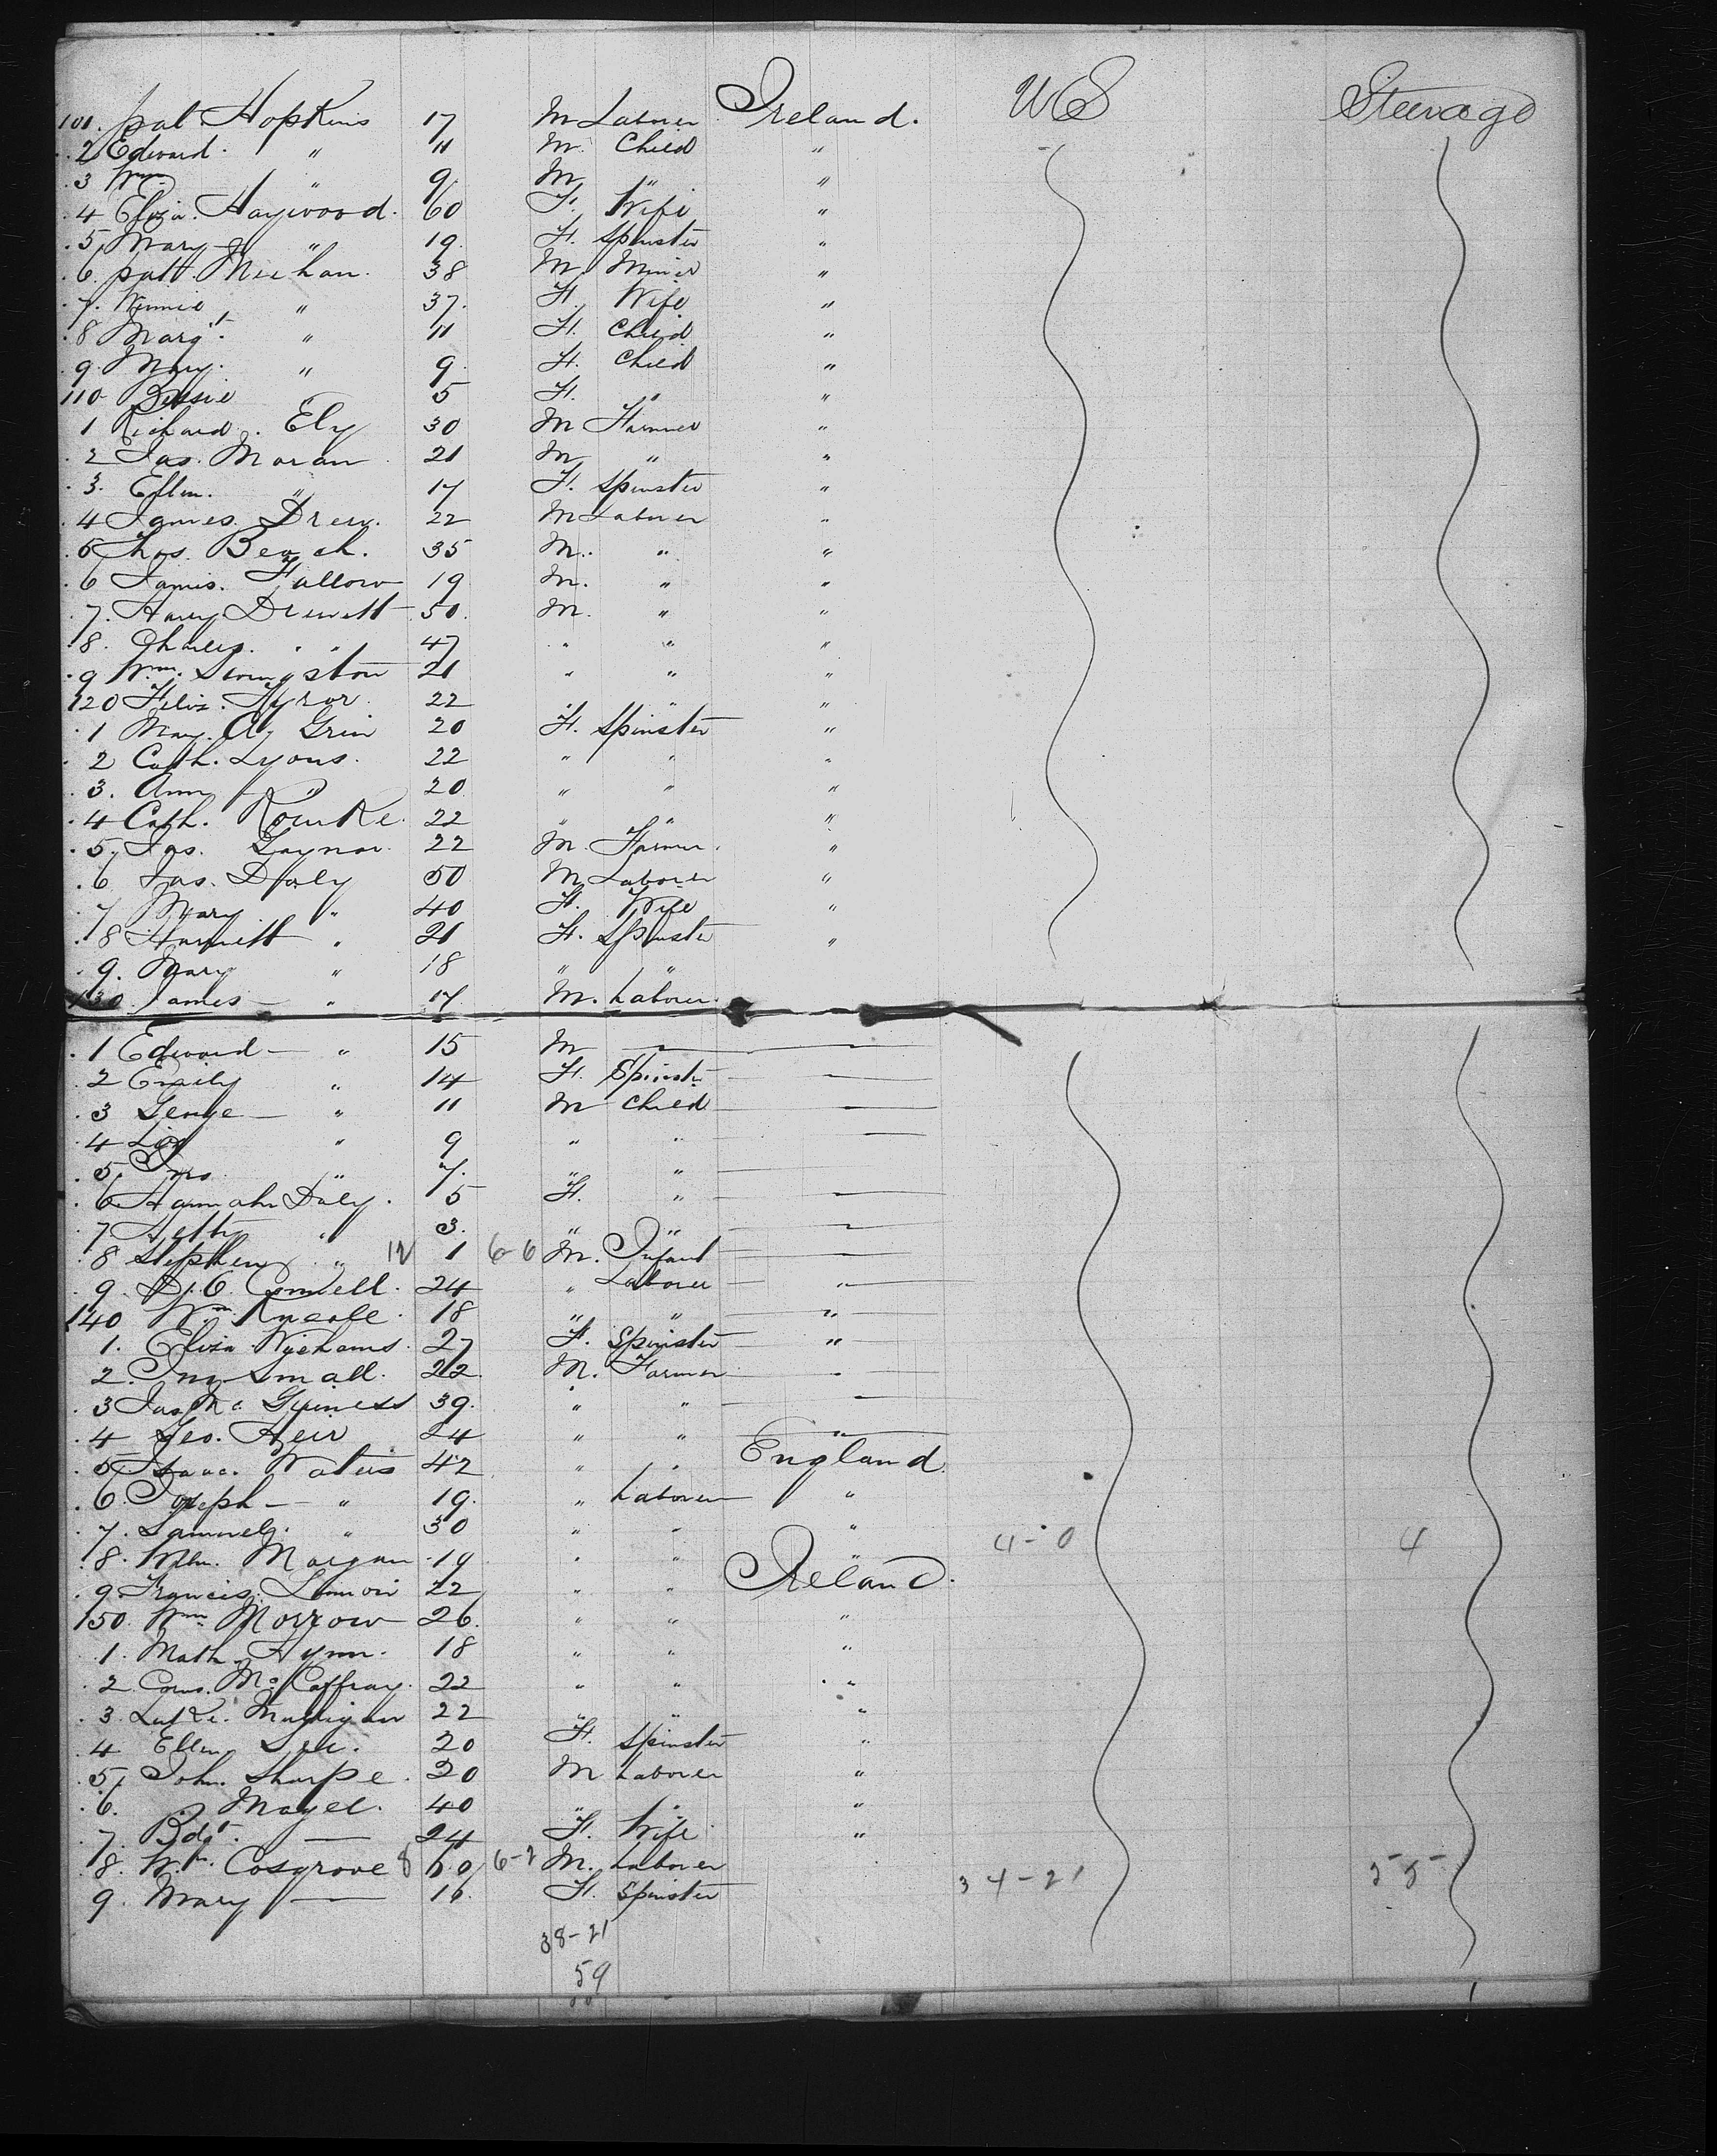 101. pat. Hopkins 17 M Laborer Ireland. US Steerage
.2 Edward. " 11 M. Child "
.3 Wm. " 9 M " "
.4 Eliza. Haywood. 60 F. Wife "
.5 Mary " 19. F. Spinster "
.6. patt. Meehan. 38 M. Miner "
.7. Winnie " 37. F. Wife "
.8 Margt. " 11 F. Child "
.9. Mary. " 9. F. Child "
110 Bessie 5 F. " "
1 Richard. Ely 30 M Farmer "
.2 Jas. Moran 21 M " "
.3. Ellen. " 17 F. Spinster "
.4 James. Drew. 22 M Laborer "
.5 Thos. Beach. 35 M. " "
.6 James. Fallow 19 M. " "
.7. Harry Drewett 50. M. " "
.8. Charles. " 47 " " "
.9 Wm. Livingston 21 " " "
120 22 " " "
.1 Mary. 20 F. Spinster "
.2 Cath. Lyons. 22 " " "
.3. Ann " 20 " " "
.4 Cath. Rourke 22 " " "
.5. Jas. Gaynor. 22 M. Farmer. "
.6 Jas. Daly 50 M Laborer "
.7 Mary " 40 F. Wife "
.8 Harriett " 21 F. Spinster "
.9. Mary " 18 " "
130 James — " 17 M. Laborer.
.1 Edward — " 15 M — —
.2 Emily " 14 F. Spinster —
.3 George — " 11 M Child —
.4 " 9 " " —
.5. Jno. " 7. " " —
.6 Hannah Daly. 5 F. " —
.7 " 3. " " —
.8 Stephen " 12 1 6-6 M. Infant —
.9. Connell. 24 " Laborer — "
140 Wm. 18 " " "
1. Eliza 27 F. Spinster "
2. Jno. Small. 22. M. Farmer "
.3 Jas. Mc. Guiness 39. " " —
.4 Geo. 24 " " "
.5 Isaac. Waters 42 " " England.
.6. Joseph — " 19. " Laborer "
.7. Samuel. " 30 " " " 4-0 4
.8. Wm. Morgan 19 " " "
.9. Francis. 22 " " Ireland.
150. Wm Morrow 26. " " "
.1. Math. 18 " " "
.2. Mc. Caffray. 22 " " "
.3. Luke. 22 " " "
.4 Ellen 20 F. Spinster "
.5. John. Sharpe. 20 M Laborer "
.6. 40 " " "
.7. Bdgt. — 24 F. Wife "
.8. Wm. Cosgrove 8 60 6-2 M. Laborer
9. Mary — 16. F. Spinster 34-21 55
38-21
59